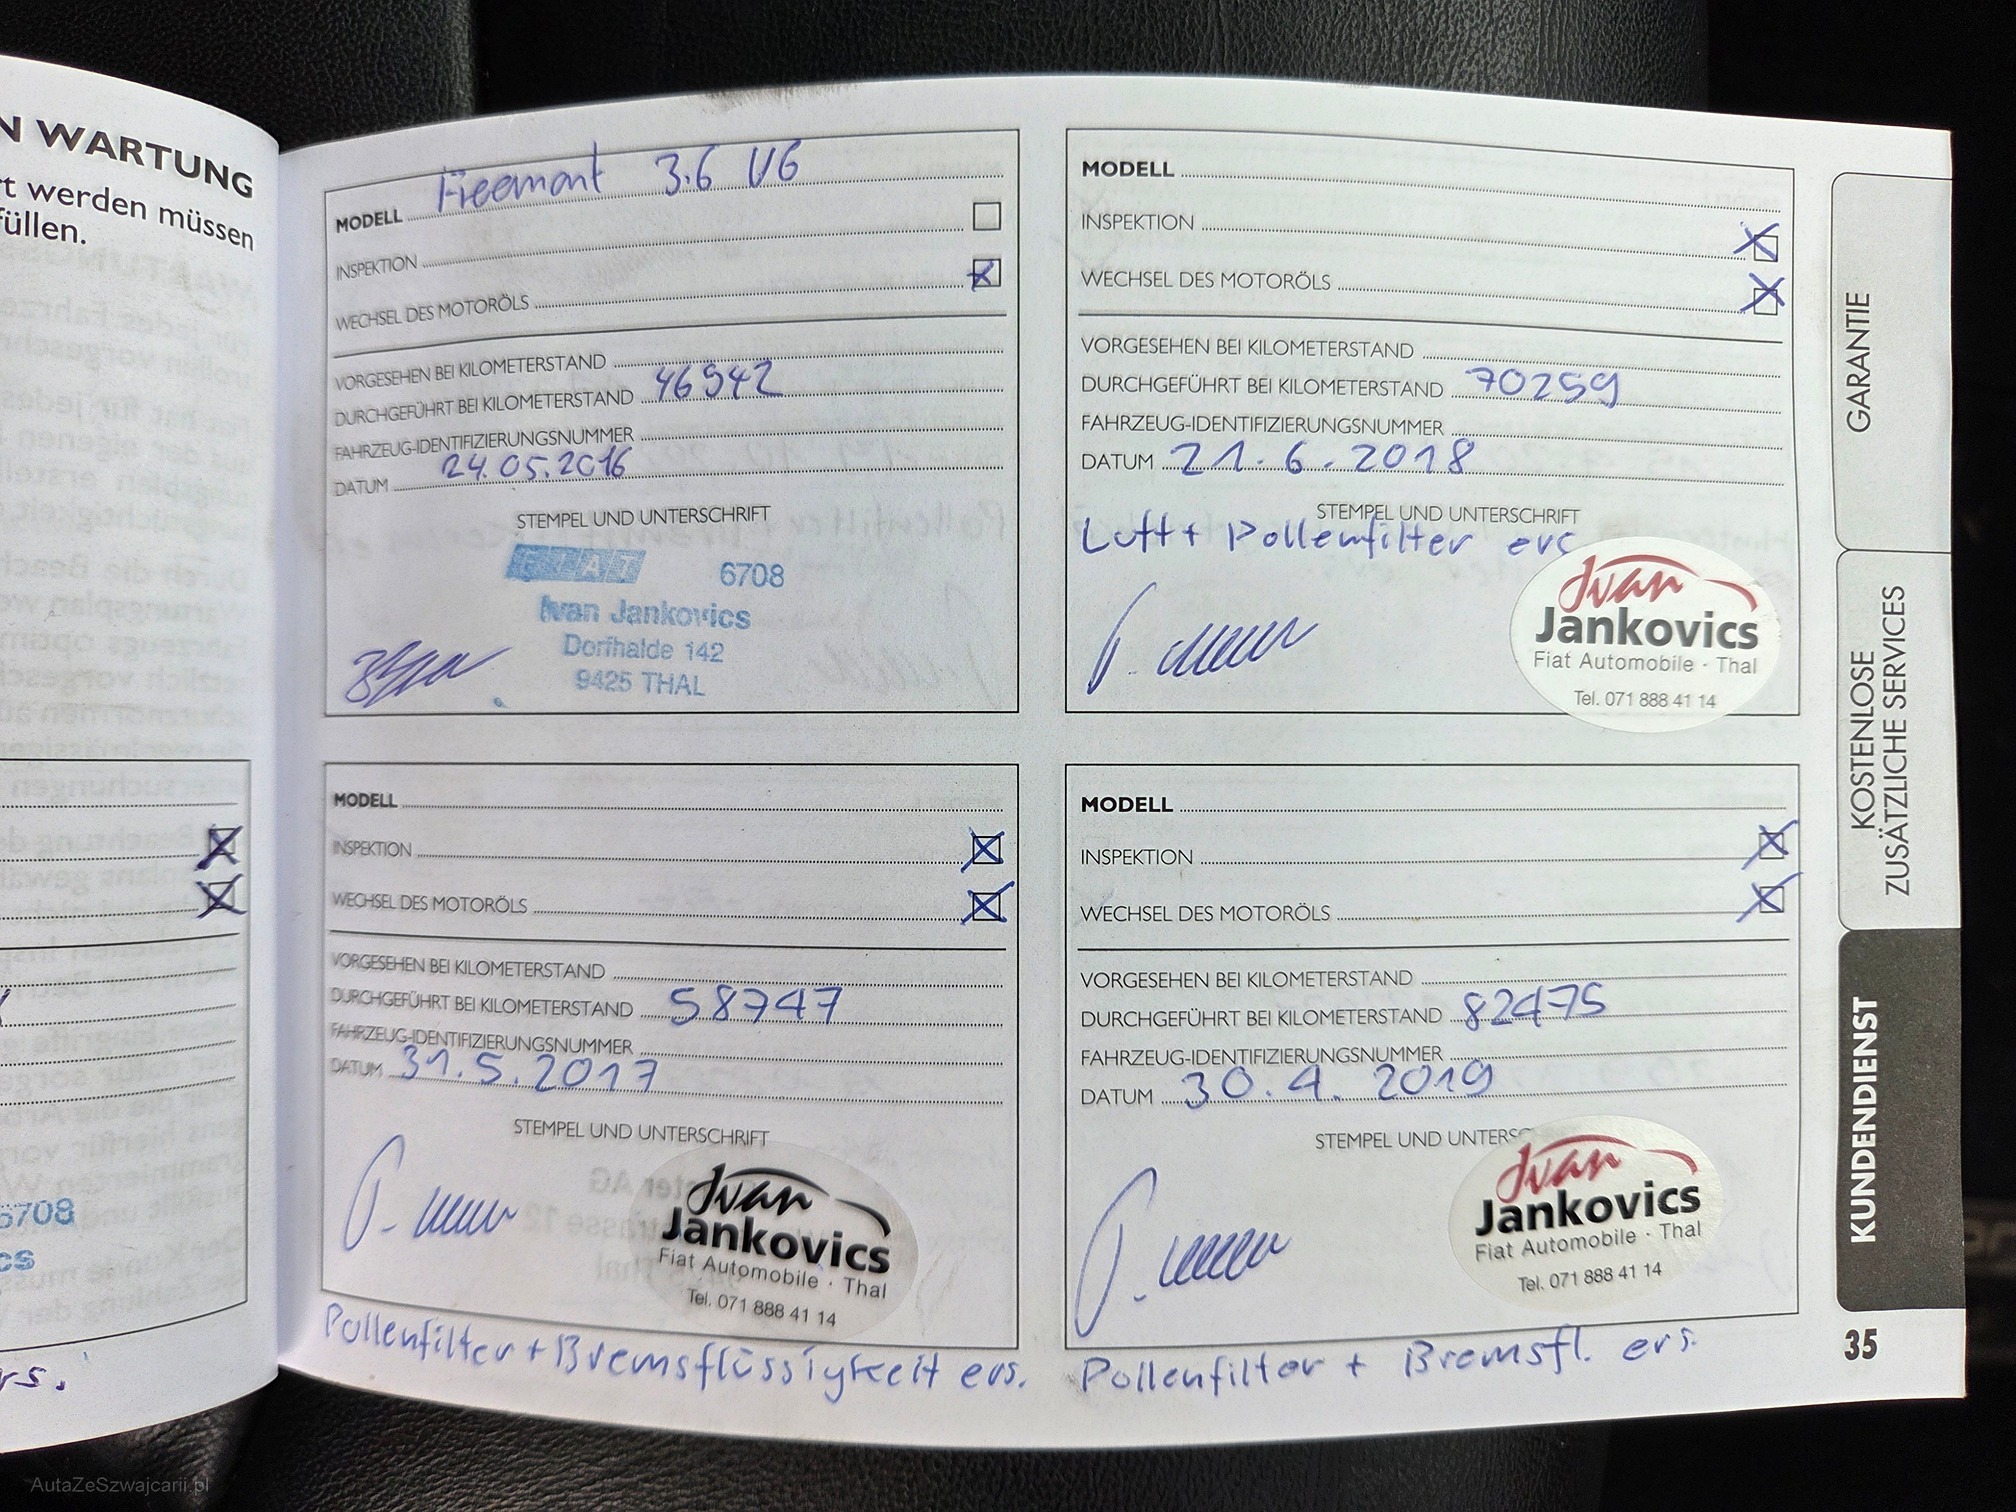 N WARTUNG
t werden müssen
füllen.
6708
cs
rs.
MODELL Freemont 3.6 V6
INSPEKTION
WECHSEL DES MOTORÖLS
VORGESEHEN BEI KILOMETERSTAND
DURCHGEFÜHRT BEI KILOMETERSTAND 46942
FAHRZEUG-IDENTIFIZIERUNGSNUMMER
DATUM 24.05.2016
STEMPEL UND UNTERSCHRIFT
FIAT 6708
Ivan Jankovics
Dorfhalde 142
9425 THAL
MODELL
INSPEKTION
WECHSEL DES MOTORÖLS
VORGESEHEN BEI KILOMETERSTAND
DURCHGEFÜHRT BEI KILOMETERSTAND 58747
FAHRZEUG-IDENTIFIZIERUNGSNUMMER
DATUM 31.5.2017
STEMPEL UND UNTERSCHRIFT
Ivan
Jankovics
Fiat Automobile · Thal
Tel. 071 888 41 14
Pollenfilter + Bremsflüssigkeit ers.
MODELL
INSPEKTION
WECHSEL DES MOTORÖLS
VORGESEHEN BEI KILOMETERSTAND
DURCHGEFÜHRT BEI KILOMETERSTAND 70259
FAHRZEUG-IDENTIFIZIERUNGSNUMMER
DATUM 21.6.2018
STEMPEL UND UNTERSCHRIFT
Luft + Pollenfilter ers
Ivan
Jankovics
Fiat Automobile · Thal
Tel. 071 888 41 14
MODELL
INSPEKTION
WECHSEL DES MOTORÖLS
VORGESEHEN BEI KILOMETERSTAND
DURCHGEFÜHRT BEI KILOMETERSTAND 82475
FAHRZEUG-IDENTIFIZIERUNGSNUMMER
DATUM 30.4.2019
STEMPEL UND UNTERSC
Ivan
Jankovics
Fiat Automobile · Thal
Tel. 071 888 41 14
Pollenfilter + Bremsfl. ers.
GARANTIE
KOSTENLOSE
ZUSÄTZLICHE SERVICES
KUNDENDIENST
35
AutaZeSzwajcarii.pl